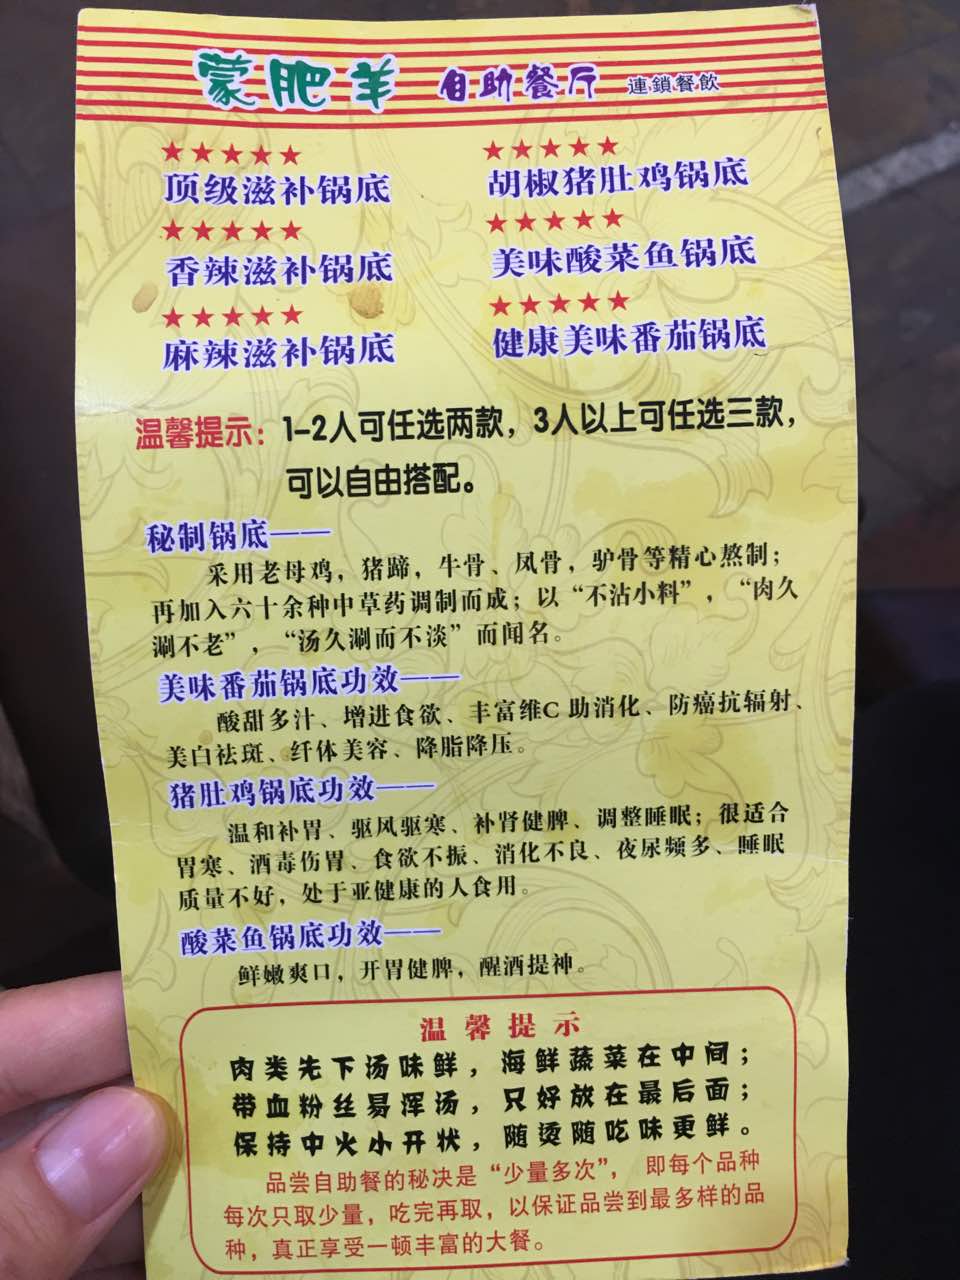 蒙肥羊 自助餐厅 連鎖餐飲
★★★★★ ★★★★★
顶级滋补锅底 胡椒猪肚鸡锅底
★★★★★ ★★★★★
香辣滋补锅底 美味酸菜鱼锅底
★★★★★ ★★★★★
麻辣滋补锅底 健康美味番茄锅底
温馨提示：1-2人可任选两款，3人以上可任选三款，
可以自由搭配。
秘制锅底——
采用老母鸡，猪蹄，牛骨、凤骨，驴骨等精心熬制；
再加入六十余种中草药调制而成；以“不沾小料”，“肉久
涮不老”，“汤久涮而不淡”而闻名。
美味番茄锅底功效——
酸甜多汁、增进食欲、丰富维C 助消化、防癌抗辐射、
美白祛斑、纤体美容、降脂降压。
猪肚鸡锅底功效——
温和补胃、驱风驱寒、补肾健脾、调整睡眠；很适合
胃寒、酒毒伤胃、食欲不振、消化不良、夜尿频多、睡眠
质量不好，处于亚健康的人食用。
酸菜鱼锅底功效——
鲜嫩爽口，开胃健脾，醒酒提神。
温馨提示
肉类先下汤味鲜，海鲜蔬菜在中间；
带血粉丝易浑汤，只好放在最后面；
保持中火小开状，随烫随吃味更鲜。
品尝自助餐的秘决是“少量多次”，即每个品种
每次只取少量，吃完再取，以保证品尝到最多样的品
种，真正享受一顿丰富的大餐。